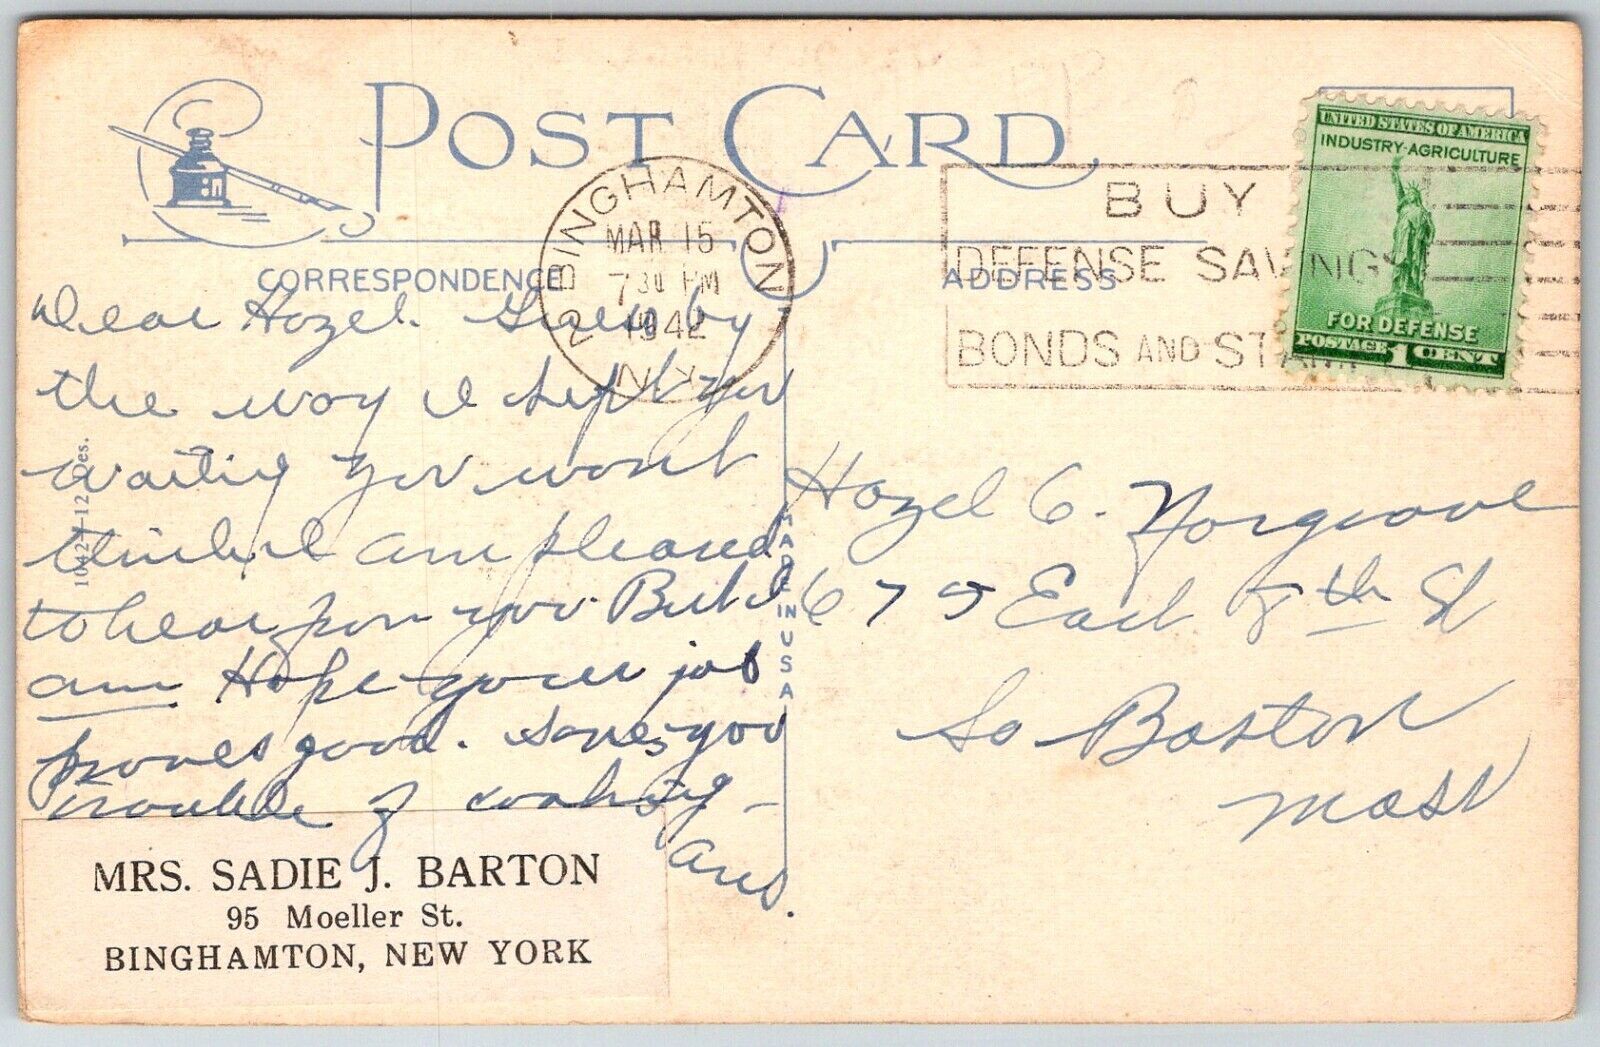 POST CARD
CORRESPONDENCE
ADDRESS
BINGHAMTON
MAR 15
7 30 PM
1942
N.Y.
2
BUY
DEFENSE SAVINGS
BONDS AND STAMPS
UNITED STATES OF AMERICA
INDUSTRY-AGRICULTURE
FOR DEFENSE
POSTAGE 1 CENT
Dear Hazel. by
the way I kept you
waiting you wont
think I am pleased
to hear from you. But I
am Hope your job
proves good. Saves you
trouble of cooking —
and.
MRS. SADIE J. BARTON
95 Moeller St.
BINGHAMTON, NEW YORK
1042-12 Des.
MADE IN USA
Hazel C. Norgrove
679 East 8th St
So Boston
Mass